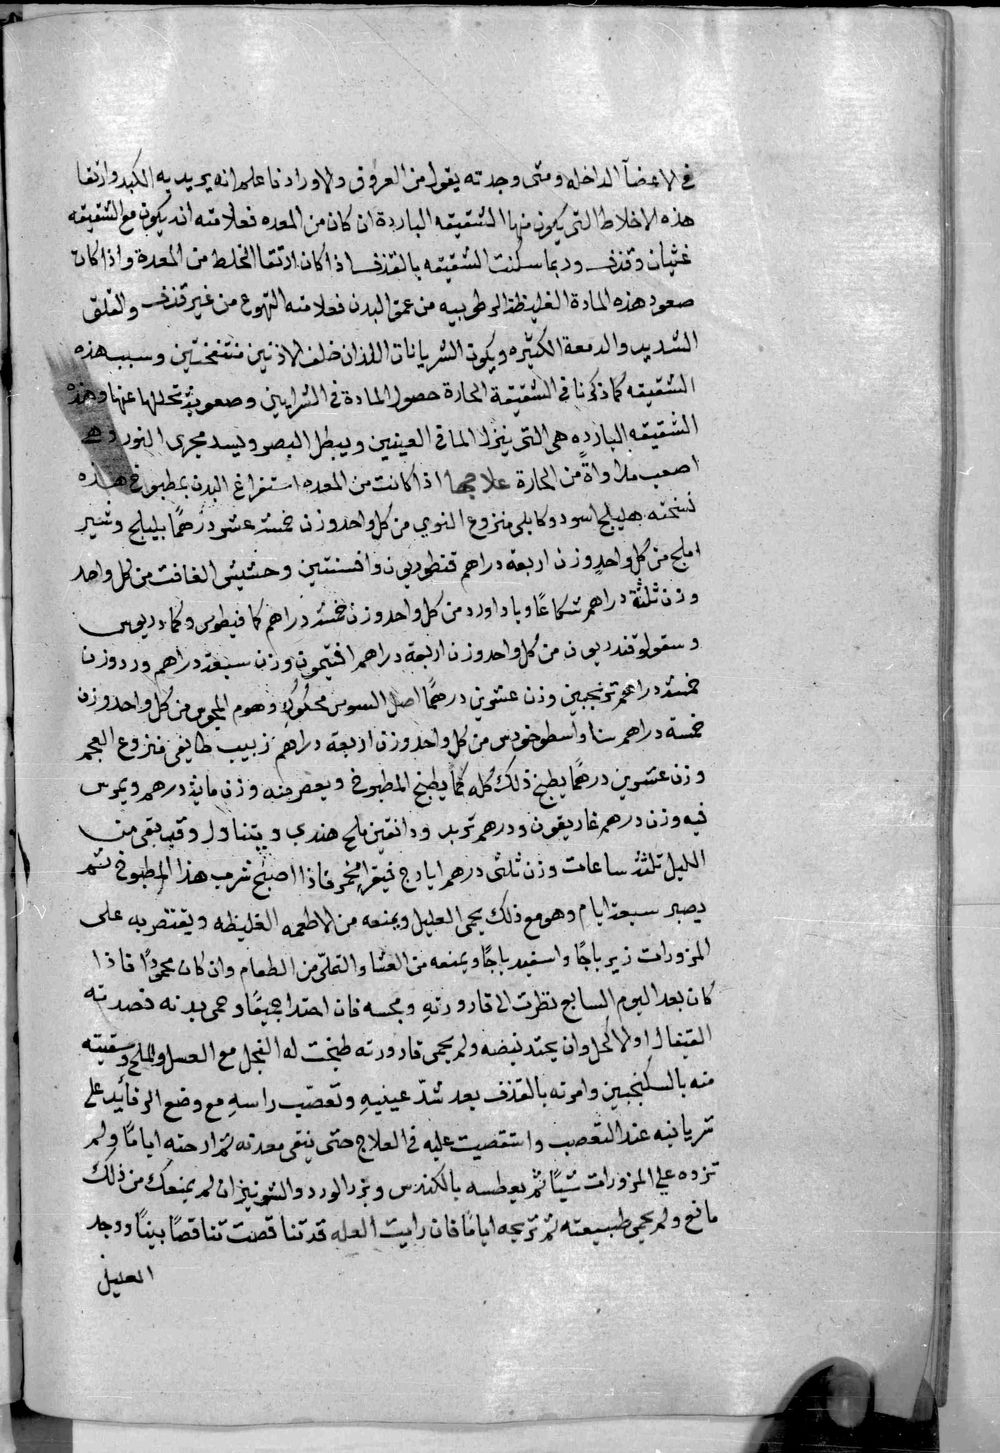 في الاعضآ الداخله ومتى وجدته يقول من العروق والاوراد فاعلم انه يريد به الكبد وارتقا
هذه الاخلاط التى يكون منها الشقيقه الباردة ان كان من المعده فعلامته ان يكون مع الشقيقه
غثيان وقذف وربما سكنت الشقيقه بالقذف اذا كان ارتقا الخلط من المعدة واذا كان
صعود هذه المادة الغليظة الرطوبيه من عمق البدن فعلامته التهوع من غير قذف والقلق
الشديد والدمعة الكثيره ويكون الشريانات اللذان خلف الاذنين منتفختين وسبب هذه
الشقيقه كما ذكرنا في الشقيقة الحارة حصول المادة في الشرايين وصعوبة تحللها عنها وهذه
الشقيقه البارده هى التى ينزل الما في العينين ويبطل البصر ويسد مجرى النور وهى
اصعب مداواةً من الحارة علاجها اذا كانت من المعده استفراغ البدن بمطبوخ هذه
نسخته هليلج اسود وكابلى منزوع النوي من كل واحد وزن خمسة عشر درهمًا بليلج وشير
املج من كل واحدٍ وزن اربعة دراهم قنطوريون وافسنتين وحشيش الغافت من كل واحد
وزن ثلثة دراهم شكاعًا وباداورد من كل واحد وزن خمسة دراهم كمافيطوس وكمادريوس
وسقولوقندريون من كل واحد وزن اربعة دراهم افتيمون وزن سبعة دراهم ورد وزن
خمسة دراهم ترنجبين وزن عشرين درهمًا اصل السوس محكوك وهوم المجوس من كل واحد وزن
خمسة دراهم سنا واسطوخودس من كل واحد وزن اربعة دراهم زبيب طايفى منزوع العجم
وزن عشرين درهمًا يطبخ ذلك كله كما يطبخ المطبوخ ويعصر منه وزن ماية درهم ويمرس
فيه وزن درهم غاريقون ودرهم تربد ودانقين ملح هندى ويتناول وقد بقى من
الليل ثلثة ساعات وزن ثلثى درهم ايارج فيقرا مخمر فاذا اصبح شرب هذا المطبوخ ثم
يصبر سبعة ايام وهو مع ذلك يحمى العليل ويمنعه من الاطعمه الغليظه ويقتصر به على
المزورات زيرباجًا واسفيدباجًا ويمنعه من العشا والتملى من الطعام وان كان محمودًا فاذا
كان بعد اليوم السابع نظرت الى قارورته ومجسه فان احتدا جميعًا وحمى بدنه فصدته
القيفال اولا كحل وان يحتد نبضه ولم يحمى قارورته طبخت له الفجل مع العسل والملح وسقيته
منه بالسكنجبين وامرته بالقذف بعد شدّ عينيه وتعصب راسهِ مع وضع الرفائد على
شريانيه عند التعصب واستقصيت عليه في العلاج حتى ينقى معدته ثم ارحته ايامًا ولم
تزده على المزورات شيًا ثم يعطسه بالكندس وبزر الورد والشونيز ان لم يمنعك من ذلك
مانع ولم يحمى طبيعته ثم تريحه ايامًا فان رايت العله قد تناقصت تناقصًا بينًا ووجد
العليل